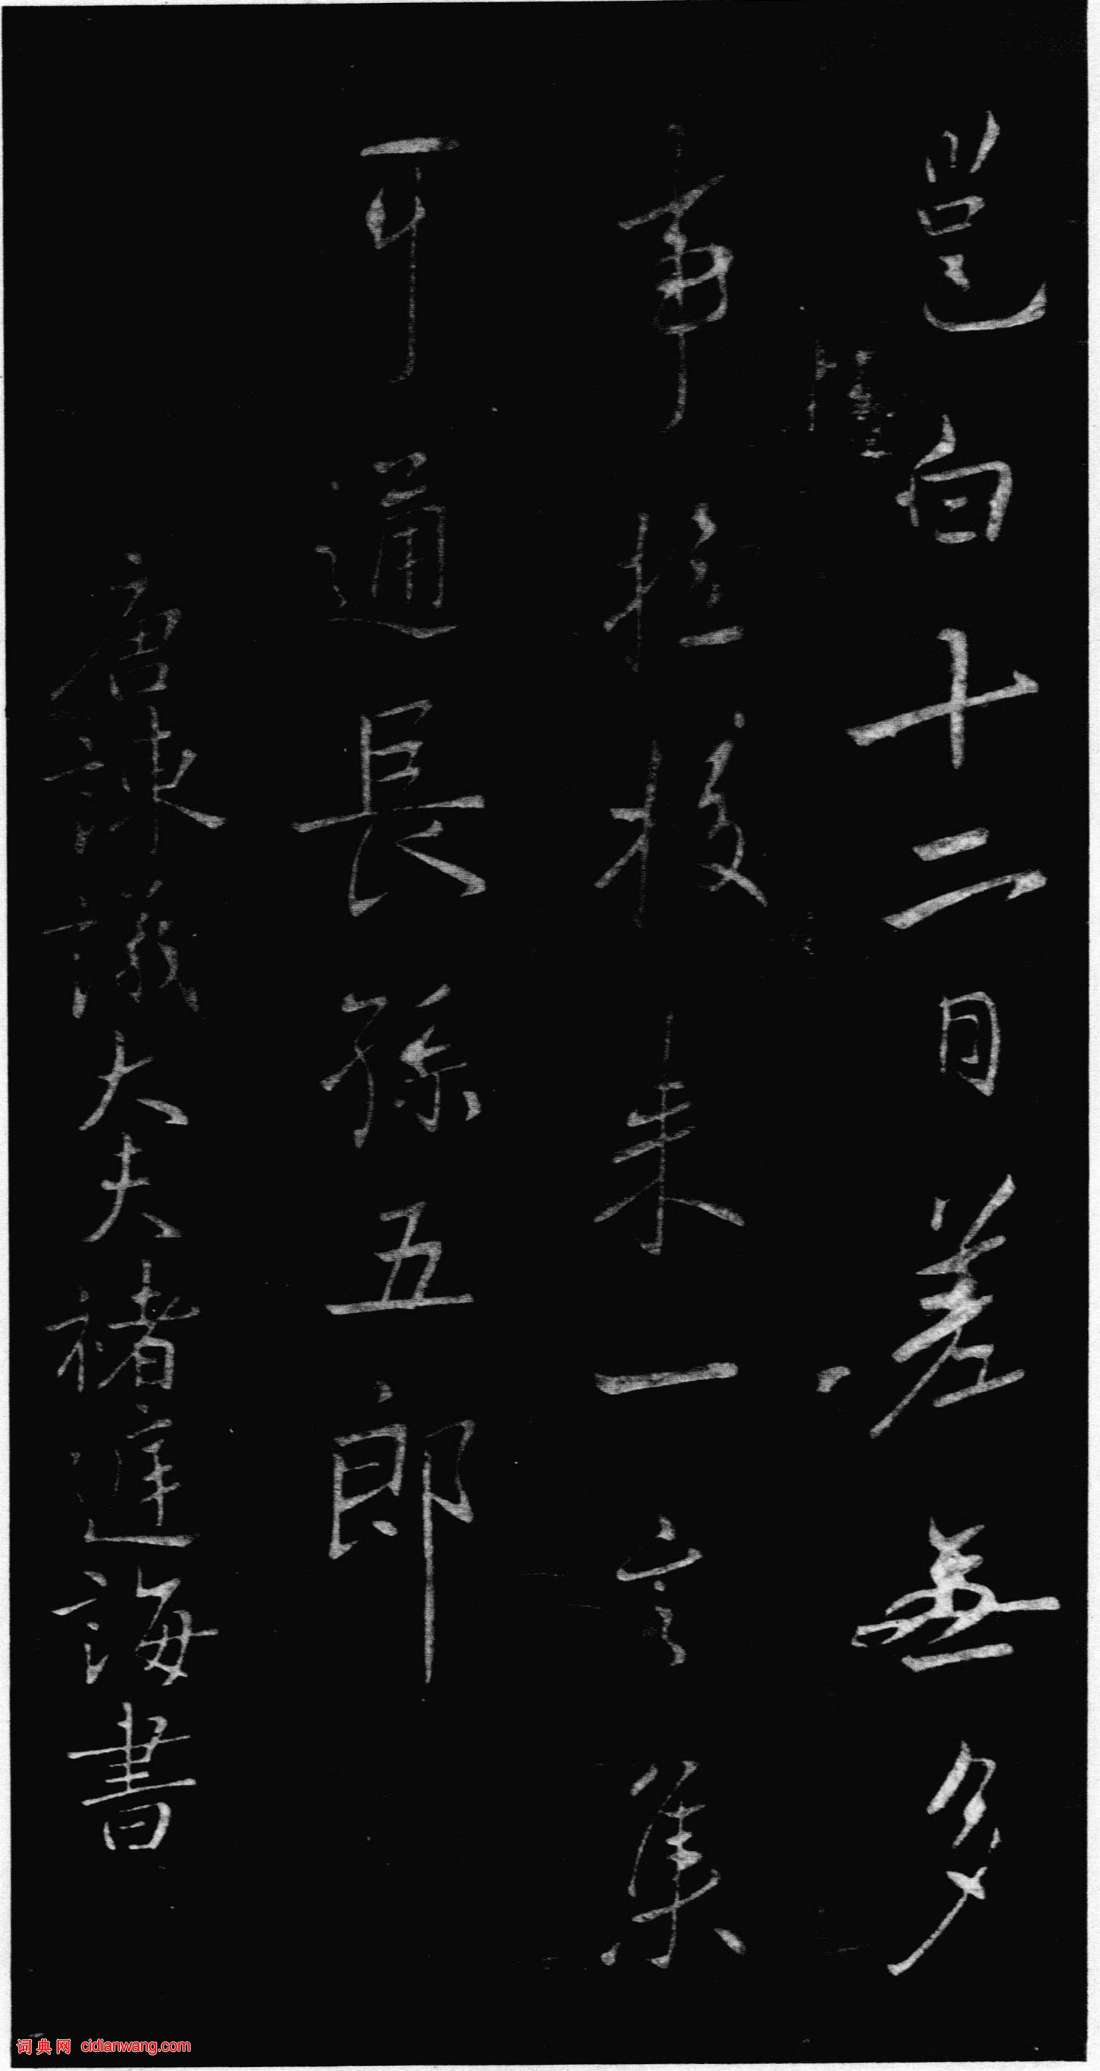 邕白十二日差無多
事 校未一言集
可通長孫五郎
唐諫議大夫褚遂誨書
词典网 cidianwang.com